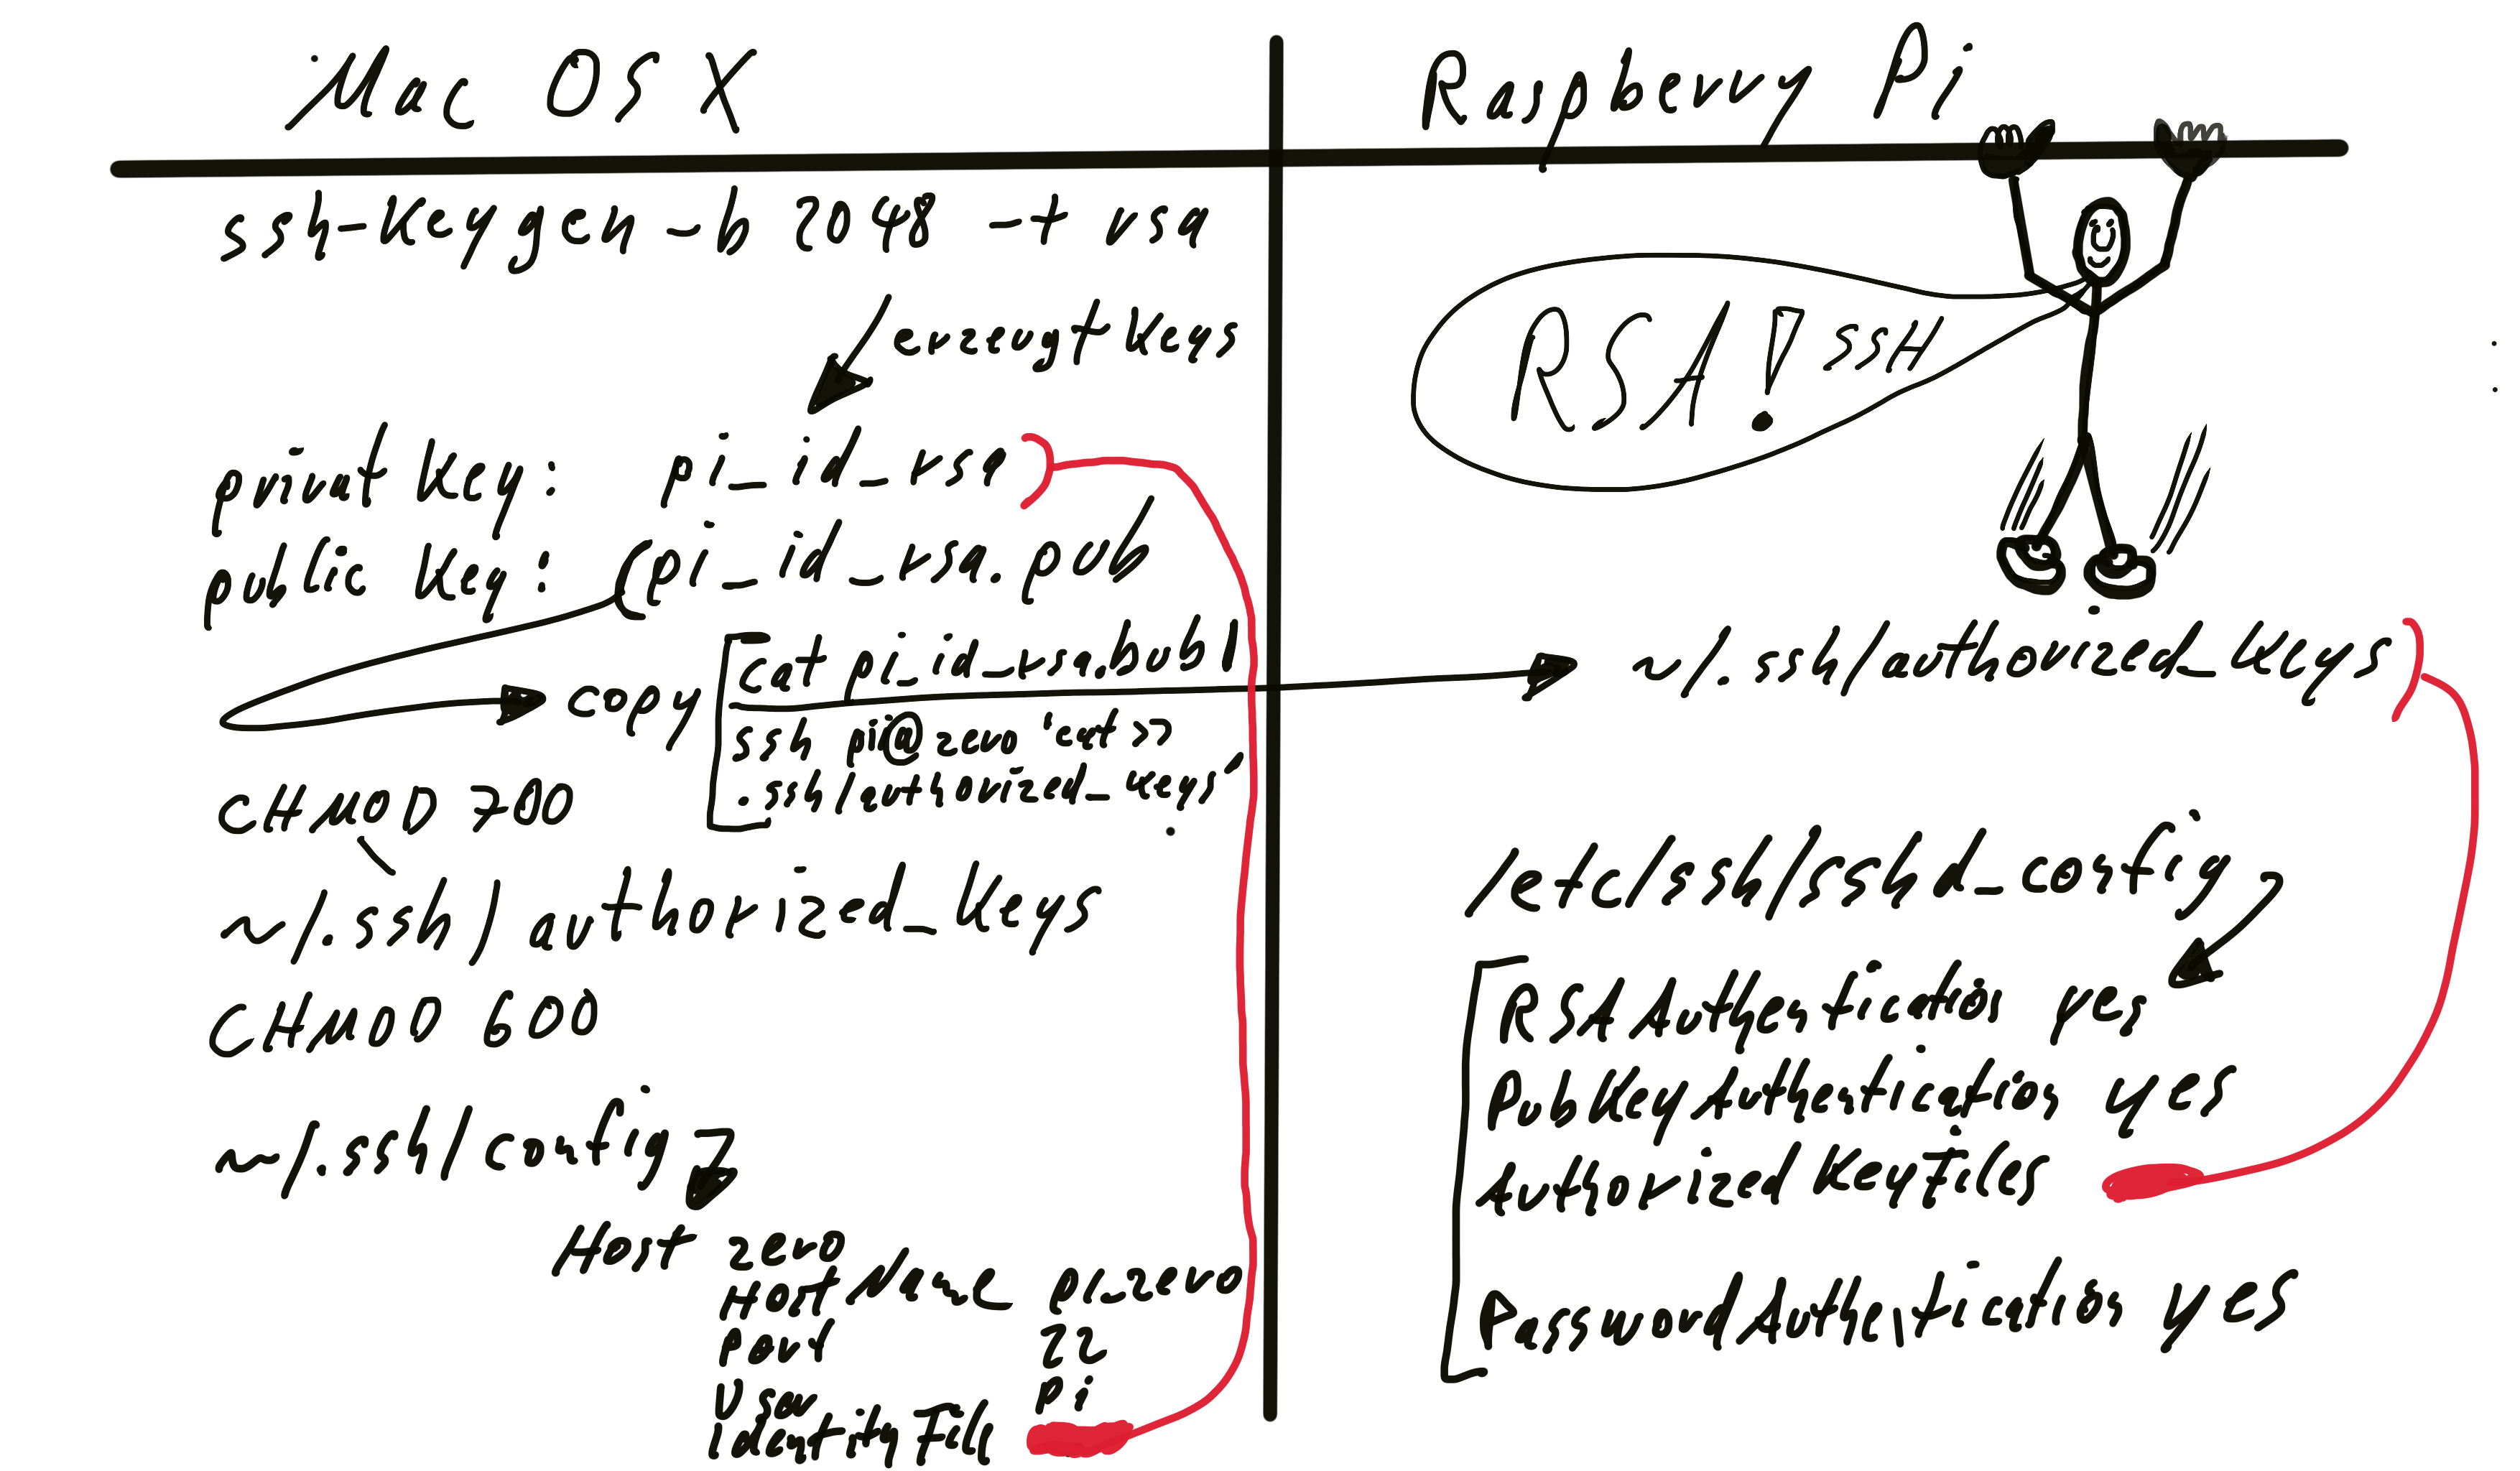 Mac OS X
ssh-keygen -b 2048 -t rsa
erzeugt keys
privat key: pi_id_rsa
public key: pi_id_rsa.pub
copy
cat pi_id_rsa.bub |
ssh pi@zero 'cat >>
.ssh/authorized_keys'
CHMOD 700
~/.ssh/authorized_keys
CHMOD 600
~/.ssh/config
Host zero
HostName pi_zero
Port 22
User pi
IdentityFile
Raspberry Pi
RSA! SSH
~/.ssh/authorized_keys
/etc/ssh/sshd_config
RSAAuthentication yes
PubKeyAuthentication yes
AuthorizedKeyFiles
PasswordAuthentication yes